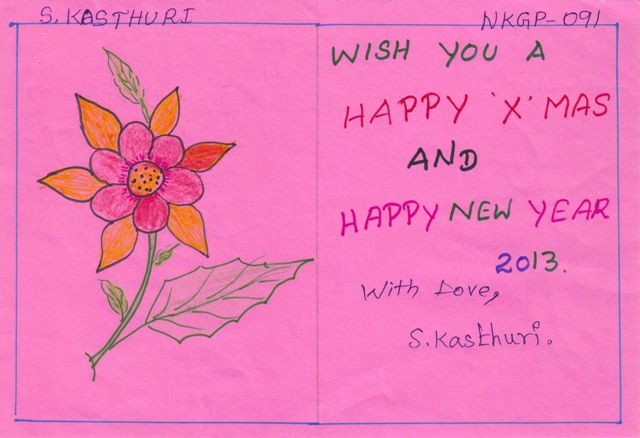 S. KASTHURI
NKGP-091
WISH YOU A
HAPPY 'X' MAS
AND
HAPPY NEW YEAR
2013.
With Love,
S.Kasthuri.